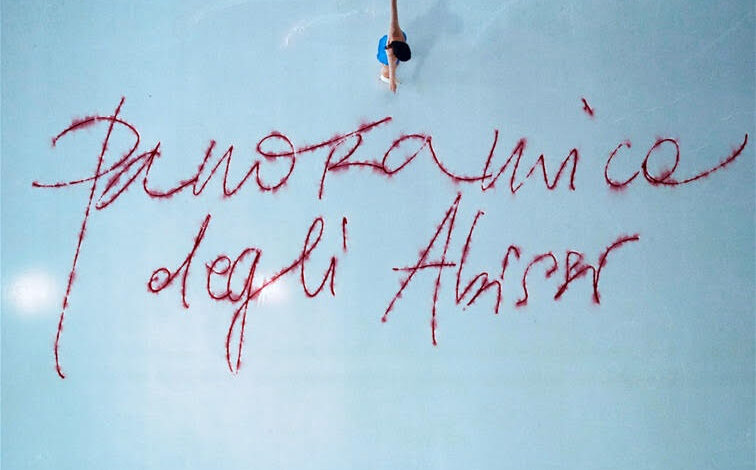 Panoramica
degli Abisser